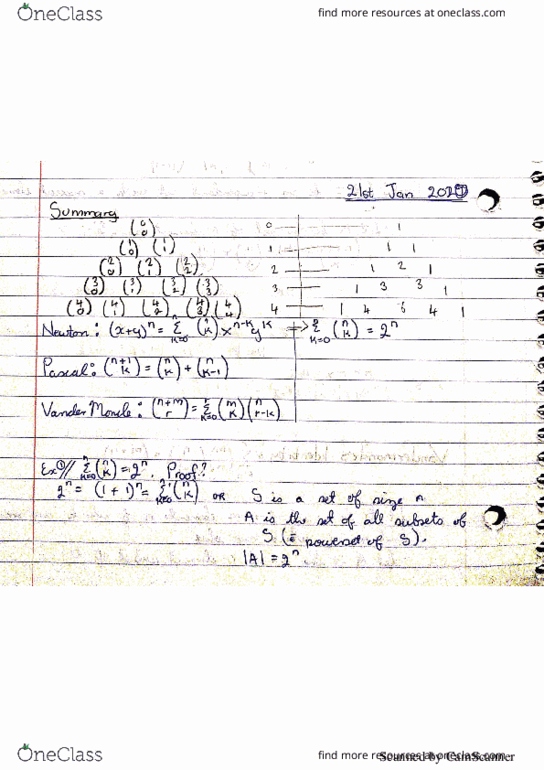 OneClass
find more resources at oneclass.com
21st Jan
Summary
(0 0) 0 1
(1 0) (1 1) 1 1 1
(2 0) (2 1) (2 2) 2 1 2 1
(3 0) (3 1) (3 2) (3 3) 3 1 3 3 1
(4 0) (4 1) (4 2) (4 3) (4 4) 4 1 4 6 4 1
Newton: (x+y)^n = Σ_{k=0}^n (n k) x^{n-k} y^k → Σ_{k=0}^n (n k) = 2^n
Pascal: (n+1 k) = (n k) + (n k-1)
VanderMonde: (n+m r) = Σ_{k=0}^r (m k)(n r-k)
Ex① // Σ_{k=0}^n (n k) = 2^n. Proof?
2^n = (1+1)^n = Σ_{k=0}^n (n k) OR S is a set of size n
A is the set of all subsets of
S (= powerset of S).
|A| = 2^n
OneClass
find more resources at oneclass.com
Scanned by CamScanner